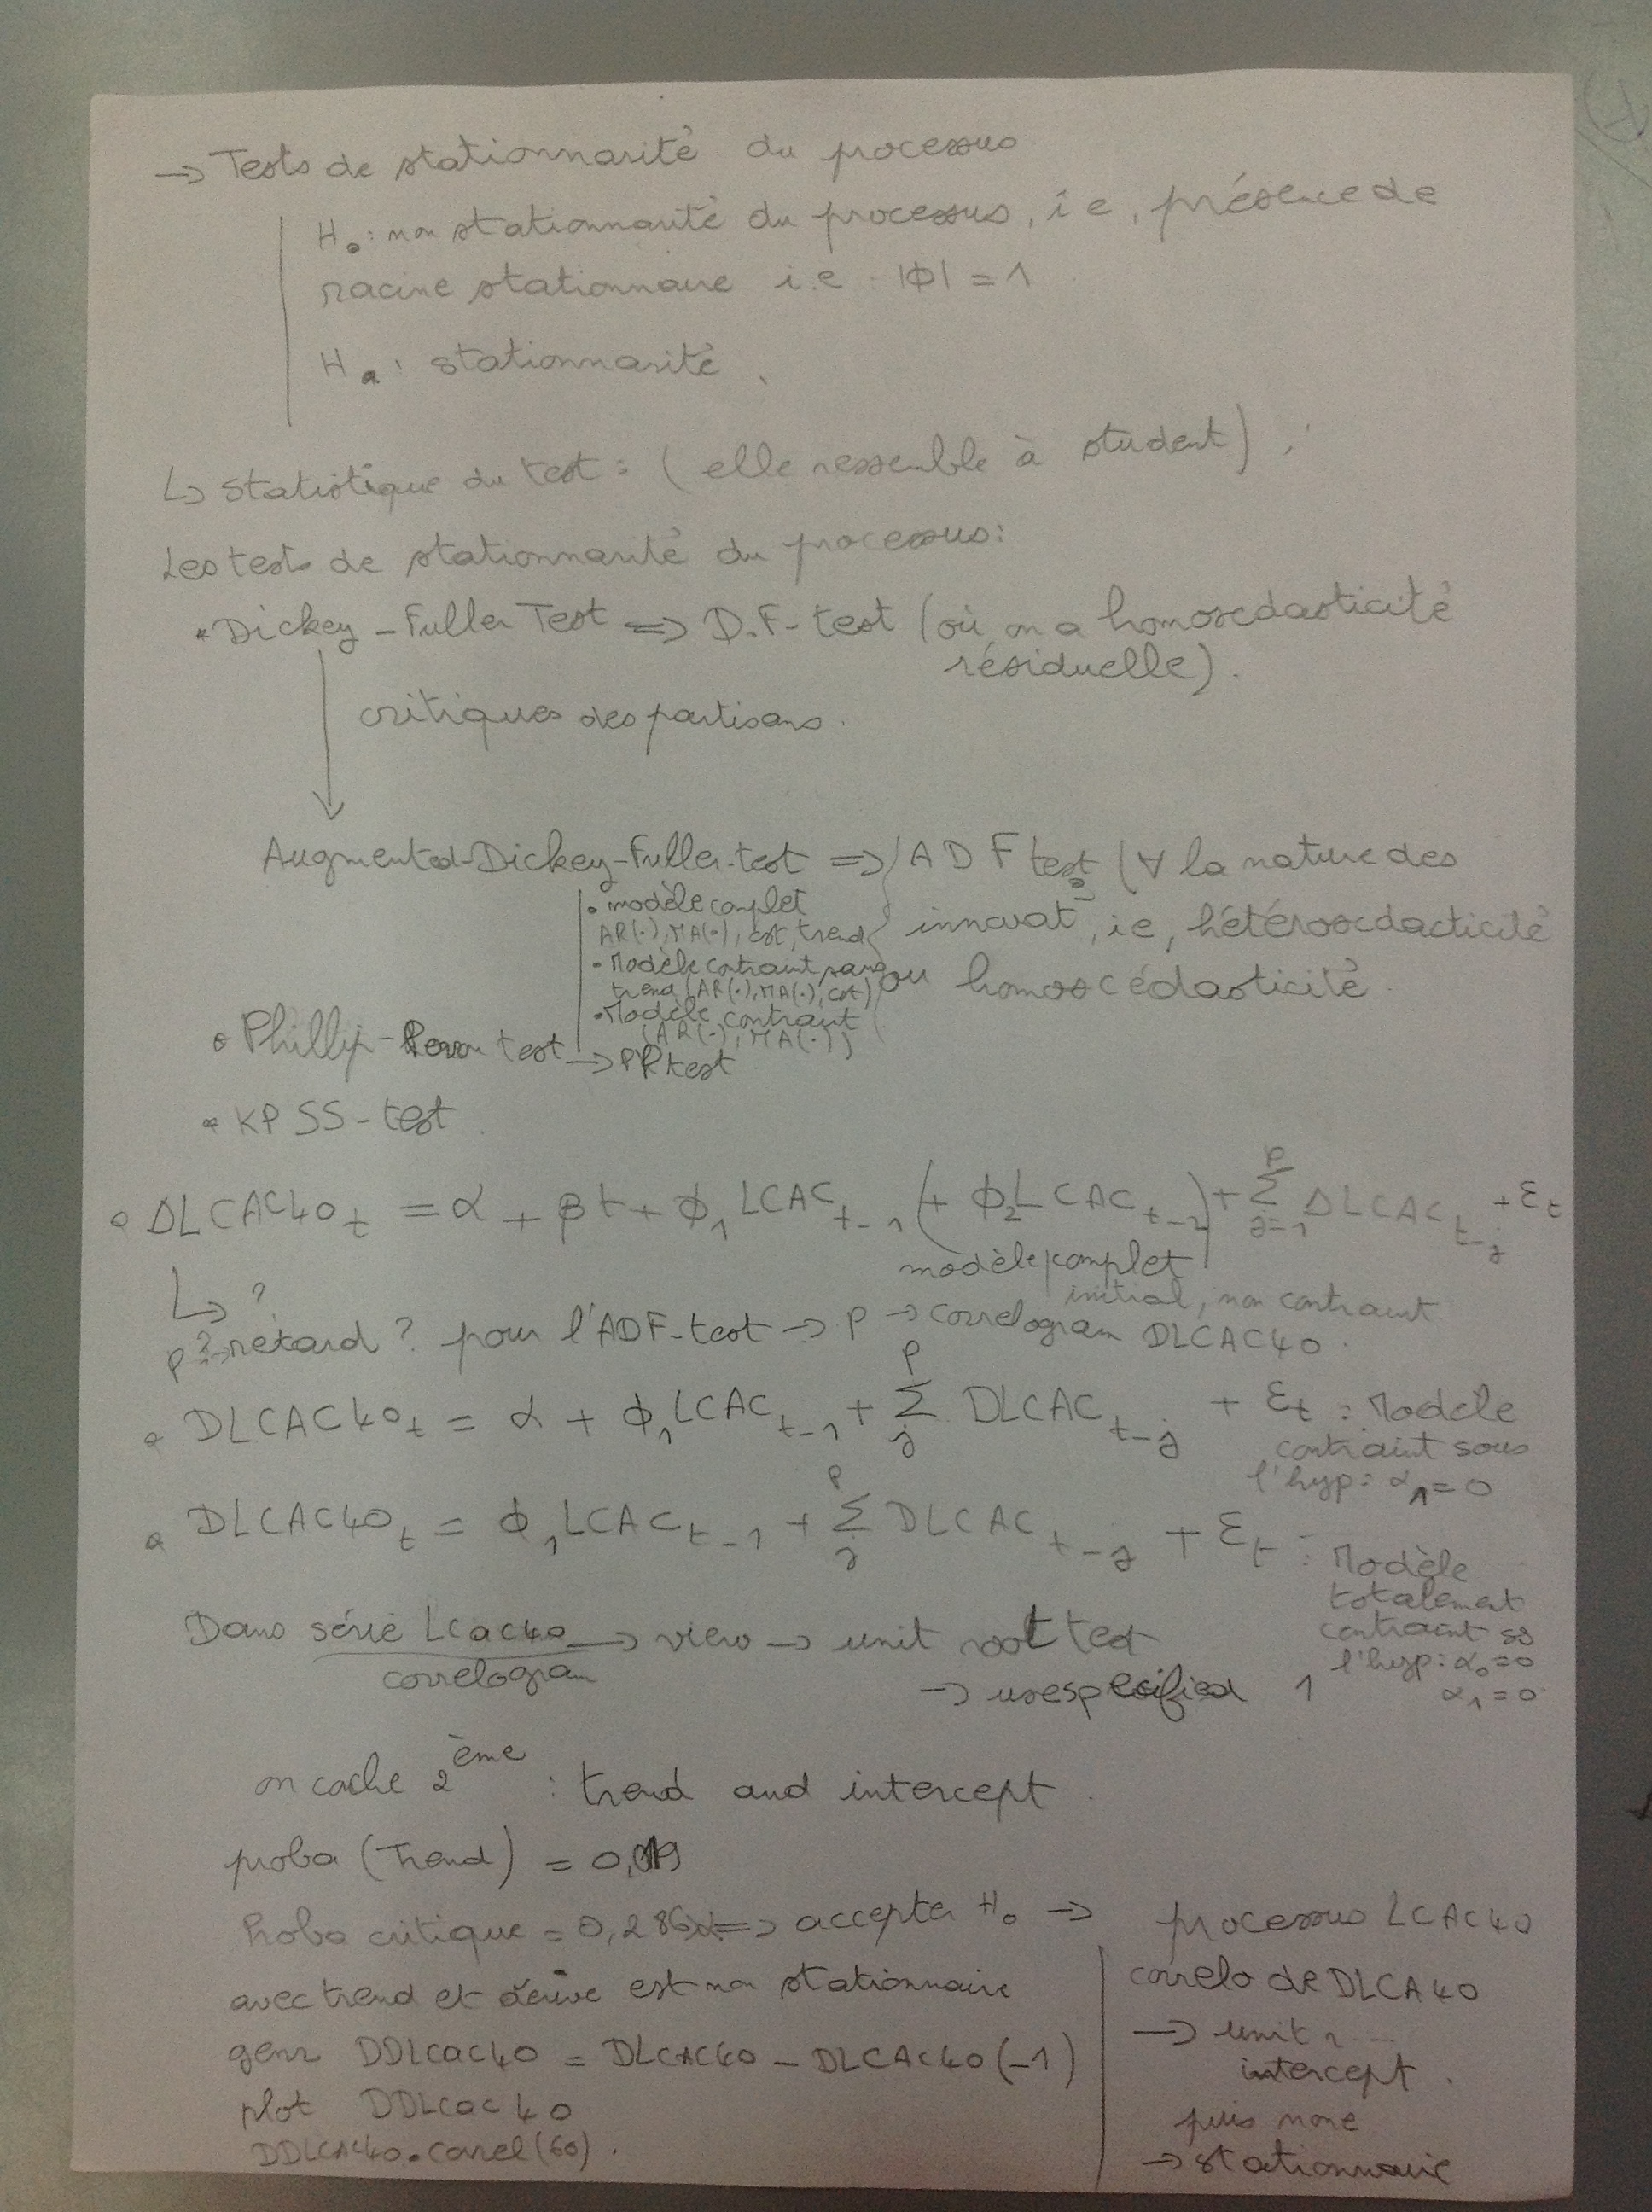 → Tests de stationnarité du processus
H₀ : non stationnarité du processus, i e, présence de
racine stationnaire i.e : |Φ| = 1
Hₐ : stationnarité.
↳ Statistique du test : (elle ressemble à student)
Les tests de stationnarité du processus :
* Dickey - Fuller Test ⇒ D.F- test (où on a homoscedasticité
résiduelle).
critiques des partisans.
Augmented-Dickey-Fuller-test ⇒ ADF test (∀ la nature des
innovat°, i e, hétéroscdacticité
ou homoscédasticité.
• modèle complet
AR(.), MA(.), cst, trend
• Modèle contraint sans
trend (AR(.), MA(.), cst)
• Modèle contraint
(AR(.), MA(.))
* Phillip-Peron test → PP test
* KPSS-test
DLCAC40ₜ = α + βt + ϕ₁ LCACₜ₋₁ (+ ϕ₂ LCACₜ₋₂) + Σ^p_{j=1} DLCAC_{t-j} + εₜ
modèle complet
initial, non contraint
↳ ?
p ?→ retard ? pour l'ADF-test → p → correlogram DLCAC40.
DLCAC40ₜ = α + ϕ₁ LCACₜ₋₁ + Σ^p_j DLCAC_{t-j} + εₜ : Modèle
contraint sous
l'hyp : α₁ = 0
DLCAC40ₜ = ϕ₁ LCACₜ₋₁ + Σ^p_j DLCAC_{t-j} + εₜ : Modèle
totalement
contraint ss
l'hyp : α₀ = 0
α₁ = 0
Dans série Lcac40 → view → unit root test
correlogram
→ usespecified 1
on cache 2ème : trend and intercept.
proba (Trend) =
Proba critique = ⇒ accepter H₀ → processus LCAC40
avec trend et dérive est non stationnaire
genr DDLcac40 = DLCAC40 - DLCAC40(-1)
plot DDLcac40
DDLCAC40.correl(60).
correlo de DLCA40
→ unit r...
intercept.
puis none
→ stationnaire